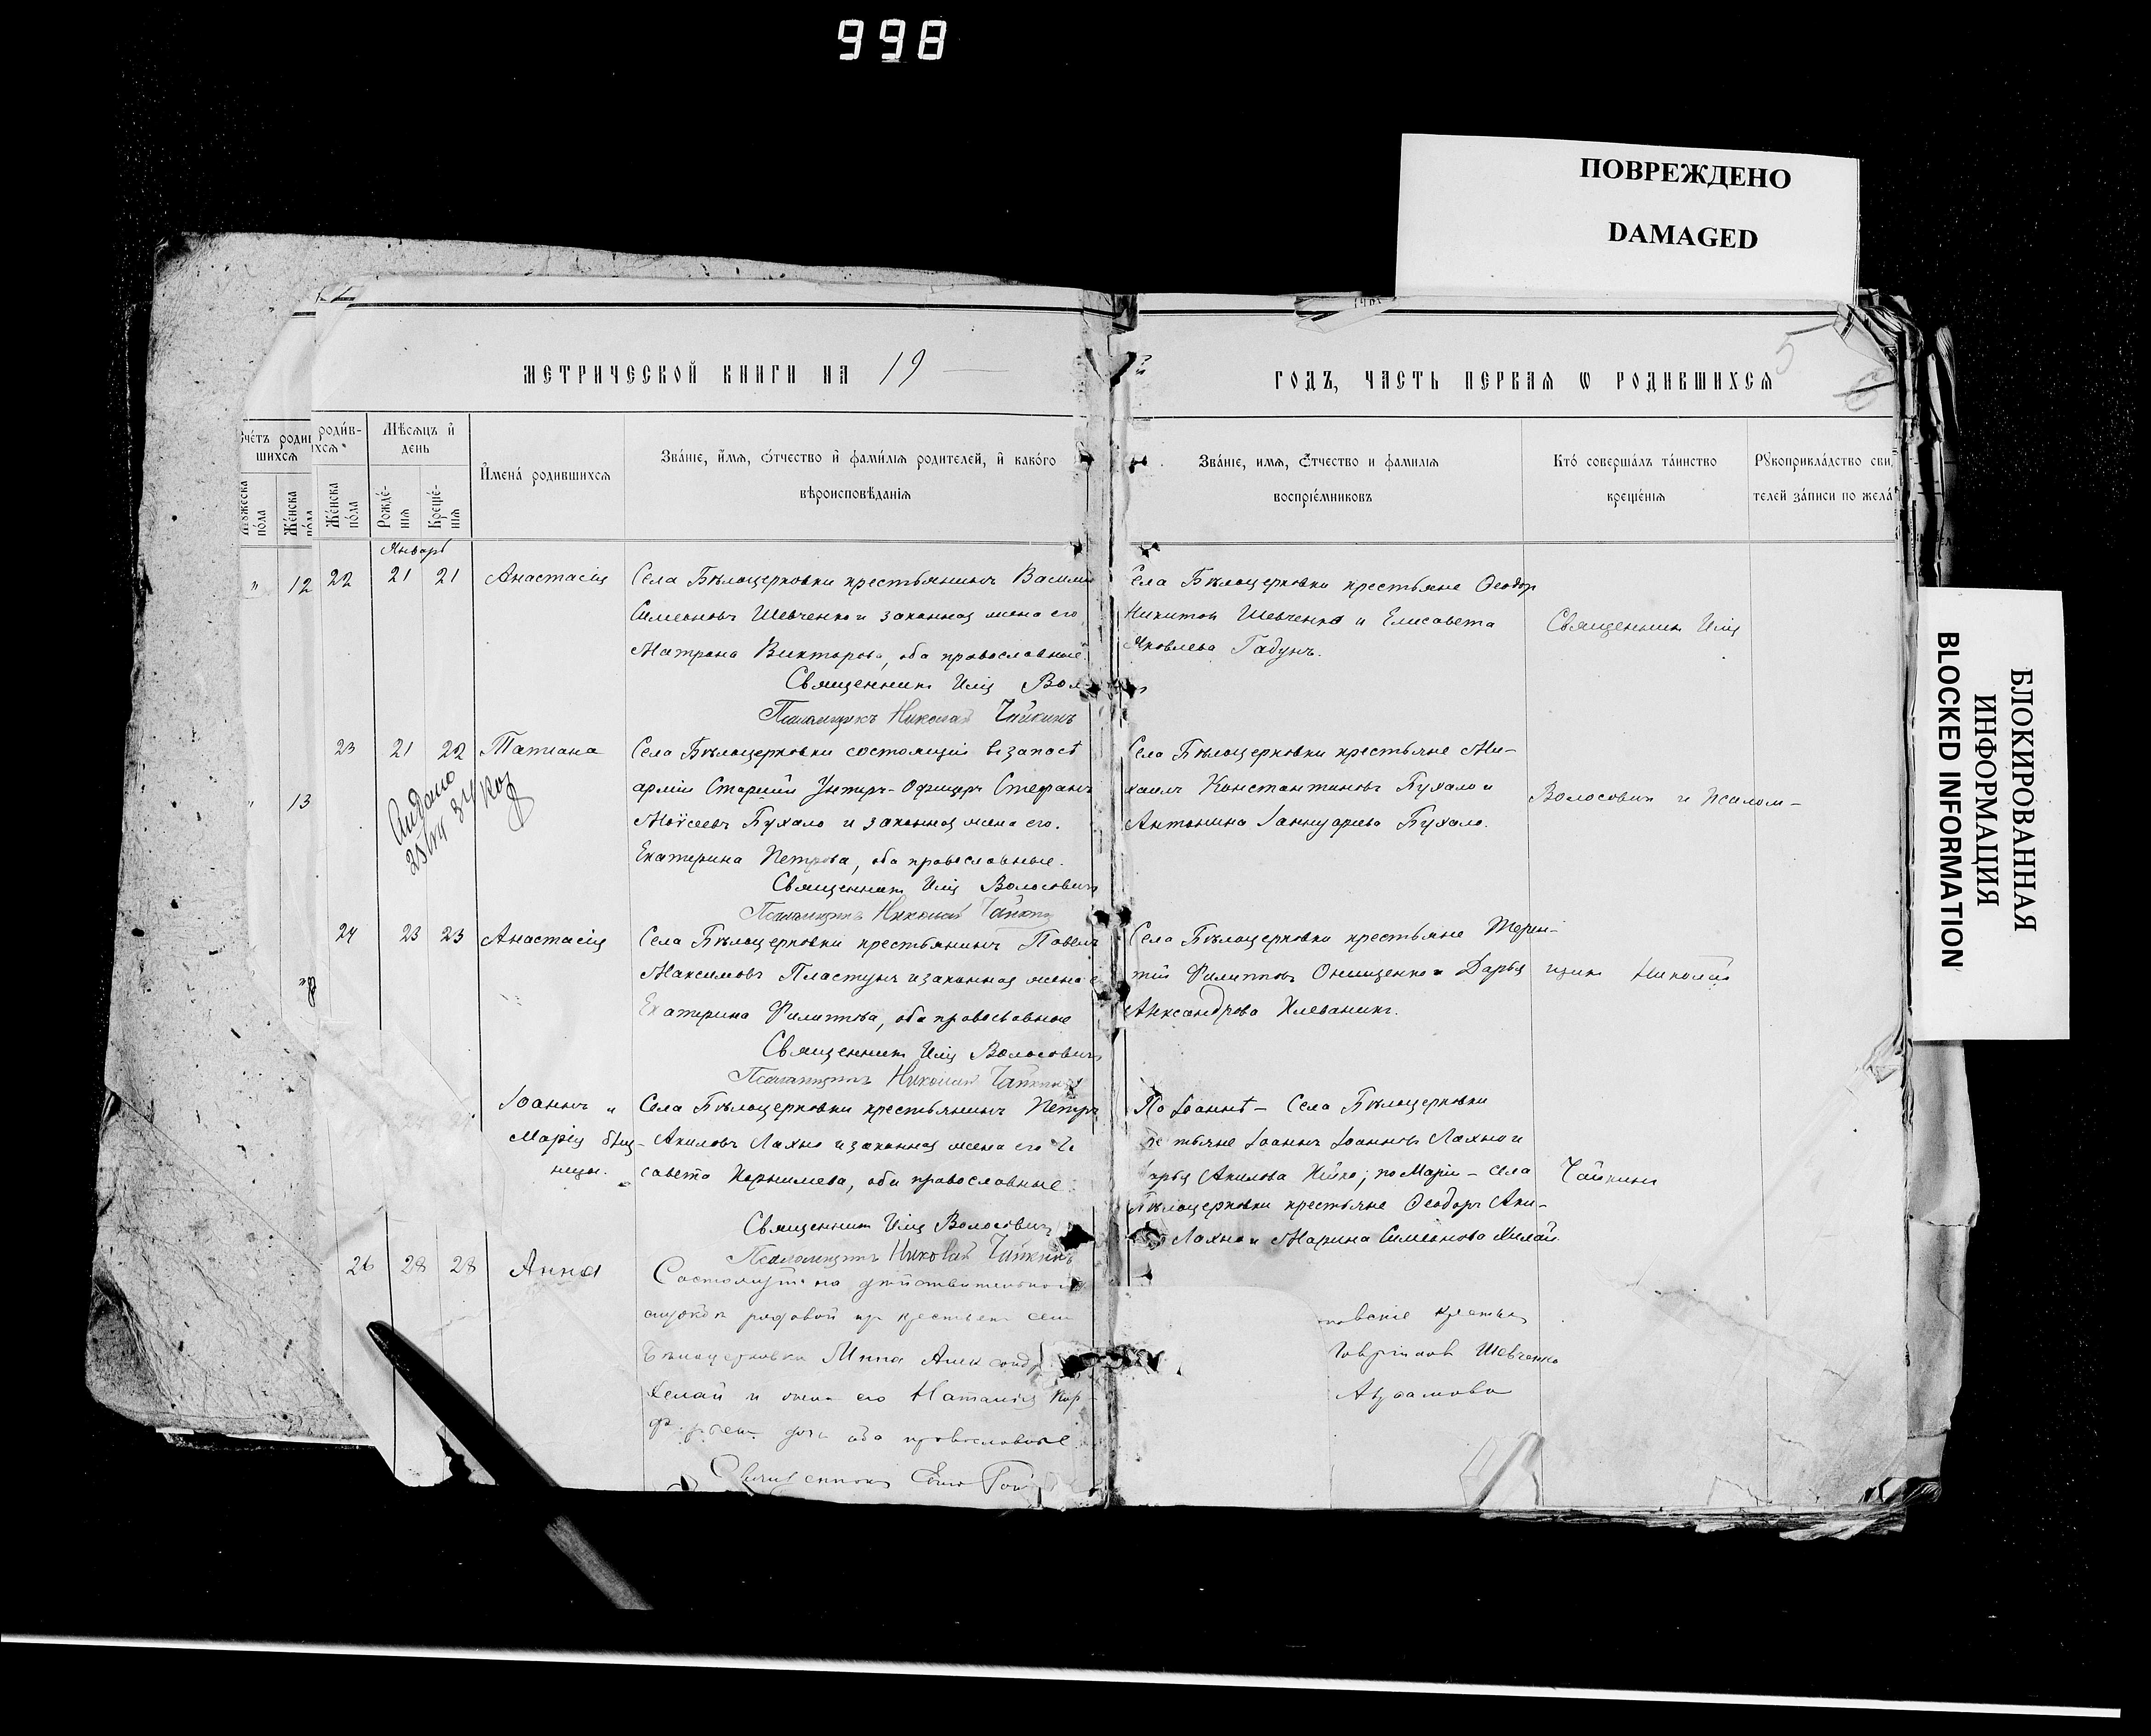 998
ПОВРЕЖДЕНО
DAMAGED
БЛОКИРОВАННАЯ
ИНФОРМАЦИЯ
BLOCKED INFORMATION
МЕТРИЧЕСКОЙ КНИГИ НА 19
ГОДЪ, ЧАСТЬ ПЕРВАЯ Ѡ РОДИВШИХСЯ
5
роди́в-
шихся
Мѣсяцъ и҆
день
Же́нска
по́ла
Рожде́-
нїя
Креще́-
нїя
И҆мена́ родившихся
Зва́нїе, и҆́мя, ѻ҆́тчество и҆ фами́лїя родителей, и҆ како́го
вѣроисповѣ́данїя
Зва́нїе, имя, ѻ҆́тчество и фамилїя
воспрїе́мниковъ
Кто́ соверша́лъ та́инство
креще́нїя
Рꙋкоприкла́дство сви,
телей за́писи по жела́
Январь
12
22 21 21 Анастасія
Села Бѣлоцерковки крестьянинъ Василій
Симеоновъ Шевченко и законная жена его
Матрона Викторова, оба православные.
Священникъ Илія Вол
Псаломщикъ Николай Чайкинъ
Села Бѣлоцерковки крестьяне Ѳеодоръ
Никитовъ Шевченко и Елисавета
Яковлева Гадунъ.
Священникъ Илія
13
23 21 22 Татіана
Села Бѣлоцерковки состоящій въ запасѣ
арміи Старшій Унтеръ-Офицеръ Стефанъ
Моѵсеевъ Бухало и законная жена его.
Екатерина Петрова, оба православные.
Священникъ Илія Волосовичъ
Псаломщикъ Николай Чайкинъ
Села Бѣлоцерковки крестьяне Ми-
хаилъ Константиновъ Бухало и
Антонина Іаннуаріева Бухало.
Волосовичъ и Псалом-
24 23 23 Анастасія
Села Бѣлоцерковки крестьянинъ Павелъ
Максимовъ Пластунъ и законная жена
Екатерина Филиппова, оба православные
Священникъ Илія Волосовичъ
Псаломщикъ Николай Чайкинъ
Села Бѣлоцерковки крестьяне Терен-
тій Филипповъ Онищенко и Дарья
Александрова Хлеваникъ.
щикъ Николай
Іоаннъ и
Марія близ-
нецы.
Села Бѣлоцерковки крестьянинъ Петръ
Акиловъ Лахно и законная жена его
савета Корнилиева, оба православные.
Священникъ Илія Волосовичъ
Псаломщикъ Николай Чайкинъ
По Іоаннѣ – Села Бѣлоцерковки
тьяне Іоаннъ Іоанновъ Лахно и
арья Акилова ; по Маріи – села
Бѣлоцерковки крестьяне Ѳеодоръ Аки-
Лахно и Марина Симеонова
Чайкинъ
26 28 28 Анна
Состоящій на дѣйствительной
службѣ рядовой крестьян села
Бѣлоцерковки Мина Александр
и жена его Наталія
оба православные
Священникъ
Шевченко